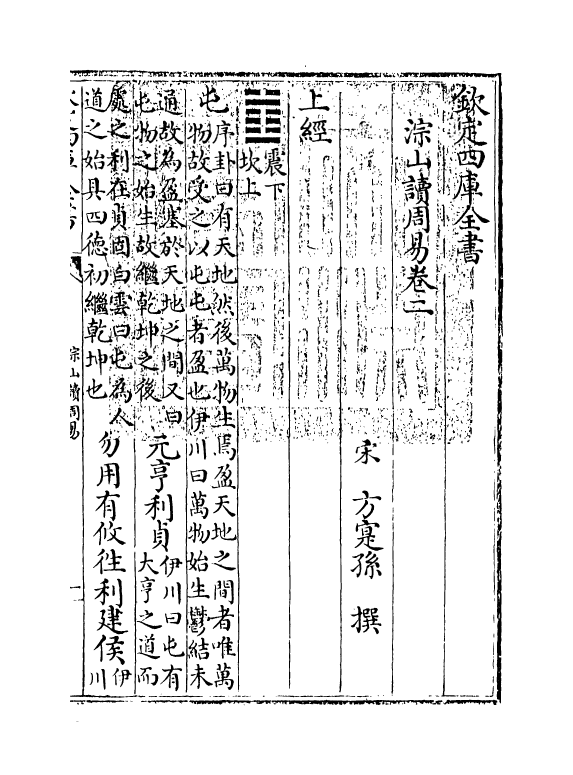 欽定四庫全書
淙山讀周易卷二
宋 方寔孫 撰
上經
䷂ 震下
坎上
屯 序卦曰有天地然後萬物生焉盈天地之間者唯萬
物故受之以屯屯者盈也伊川曰萬物始生鬱結未
通故為盈塞於天地之間又曰
屯物之始生故繼乾坤之後
元亨利貞
伊川曰屯有
大亨之道而
處之利在貞固白雲曰屯為人
道之始具四德初繼乾坤也
勿用有攸往利建侯
伊
川
淙山讀周易